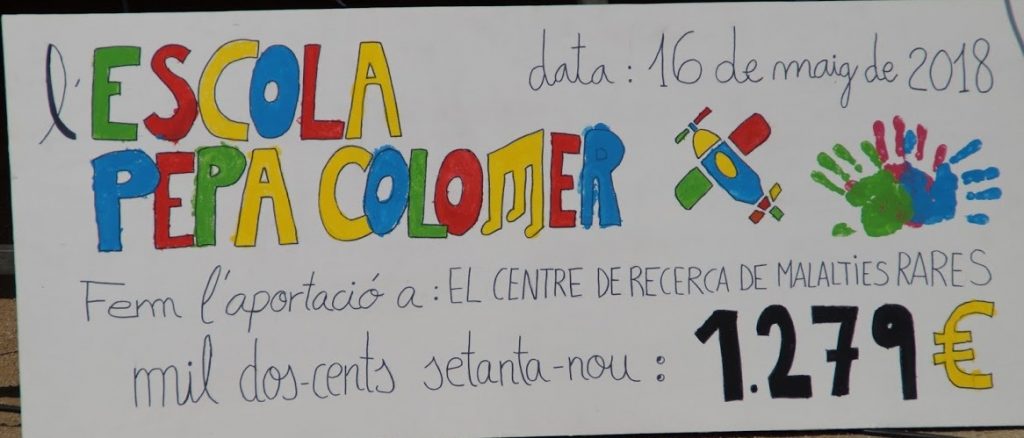 l'ESCOLA
PEPA COLOMER
data: 16 de maig de 2018
Fem l'aportació a: EL CENTRE DE RECERCA DE MALALTIES RARES
mil dos-cents setanta-nou: 1.279 €